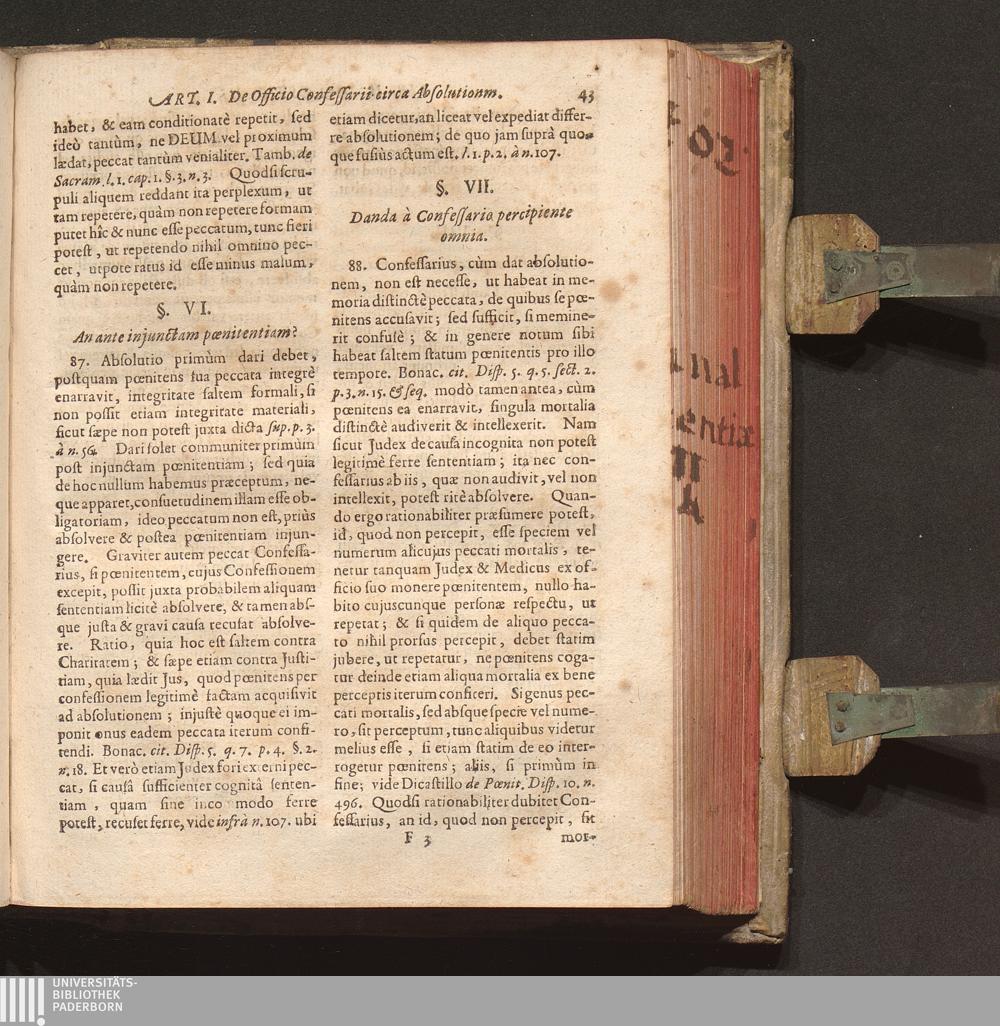 ART. I. De Officio Confessarii circa Absolutionm. 43
habet, & eam conditionatè repetit, sed
ideò tantùm, ne DEUM vel proximum
lædat, peccat tantùm venialiter. Tamb. de
Sacram. l. 1. cap. 1. §. 3. n. 3. Quodsi scru-
puli aliquem reddant ita perplexum, ut
tam repetere, quàm non repetere formam
putet hîc & nunc esse peccatum, tunc fieri
potest, ut repetendo nihil omnino pec-
cet, utpote ratus id esse minus malum,
quàm non repetere.
§. VI.
An ante injunctam pœnitentiam?
87. Absolutio primùm dari debet,
postquam pœnitens sua peccata integrè
enarravit, integritate saltem formali, si
non possit etiam integritate materiali,
sicut sæpe non potest juxta dicta sup. p. 3.
à n. 56. Dari solet communiter primùm
post injunctam pœnitentiam; sed quia
de hoc nullum habemus præceptum, ne-
que apparet, consuetudinem illam esse ob-
ligatoriam, ideo peccatum non est, priùs
absolvere & postea pœnitentiam injun-
gere. Graviter autem peccat Confessa-
rius, si pœnitentem, cujus Confessionem
excepit, possit juxta probabilem aliquam
sententiam licitè absolvere, & tamen abs-
que justa & gravi causa recusat absolve-
re. Ratio, quia hoc est saltem contra
Charitatem; & sæpe etiam contra Justi-
tiam, quia lædit Jus, quod pœnitens per
confessionem legitimè factam acquisivit
ad absolutionem; injustè quoque ei im-
ponit onus eadem peccata iterum confi-
tendi. Bonac. cit. Disp. 5. q. 7. p. 4. §. 2.
n. 18. Et verò etiam Judex fori externi pec-
cat, si causâ sufficienter cognitâ senten-
tiam, quam sine inco modo ferre
potest, recuset ferre, vide infrà n. 107. ubi
etiam dicetur, an liceat vel expediat differ-
re absolutionem; de quo jam suprà quo-
que fusiùs actum est. l. 1. p. 2. à n. 107.
§. VII.
Danda à Confessario percipiente
omnia.
88. Confessarius, cùm dat absolutio-
nem, non est necesse, ut habeat in me-
moria distinctè peccata, de quibus se pœ-
nitens accusavit; sed sufficit, si memine-
rit confusè; & in genere notum sibi
habeat saltem statum pœnitentis pro illo
tempore. Bonac. cit. Disp. 5. q. 5. sect. 2.
p. 3. n. 15. & seq. modò tamen antea, cùm
pœnitens ea enarravit, singula mortalia
distinctè audiverit & intellexerit. Nam
sicut Judex de causa incognita non potest
legitimè ferre sententiam; ita nec con-
fessarius ab iis, quæ non audivit, vel non
intellexit, potest ritè absolvere. Quan-
do ergo rationabiliter præsumere potest,
id, quod non percepit, esse speciem vel
numerum alicujus peccati mortalis, te-
netur tanquam Judex & Medicus ex of-
ficio suo monere pœnitentem, nullo ha-
bito cujuscunque personæ respectu, ut
repetat; & si quidem de aliquo pecca-
to nihil prorsus percepit, debet statim
jubere, ut repetatur, ne pœnitens coga-
tur deinde etiam aliqua mortalia ex bene
perceptis iterum confiteri. Si genus pec-
cati mortalis, sed absque specie vel nume-
ro, sit perceptum, tunc aliquibus videtur
melius esse, si etiam statim de eo inter-
rogetur pœnitens; aliis, si primùm in
fine; vide Dicastillo de Pœnit. Disp. 10. n.
496. Quodsi rationabiliter dubitet Con-
fessarius, an id, quod non percepit, sit
F 3 mor-
nal
entiæ
II
A
UNIVERSITÄTS-
BIBLIOTHEK
PADERBORN